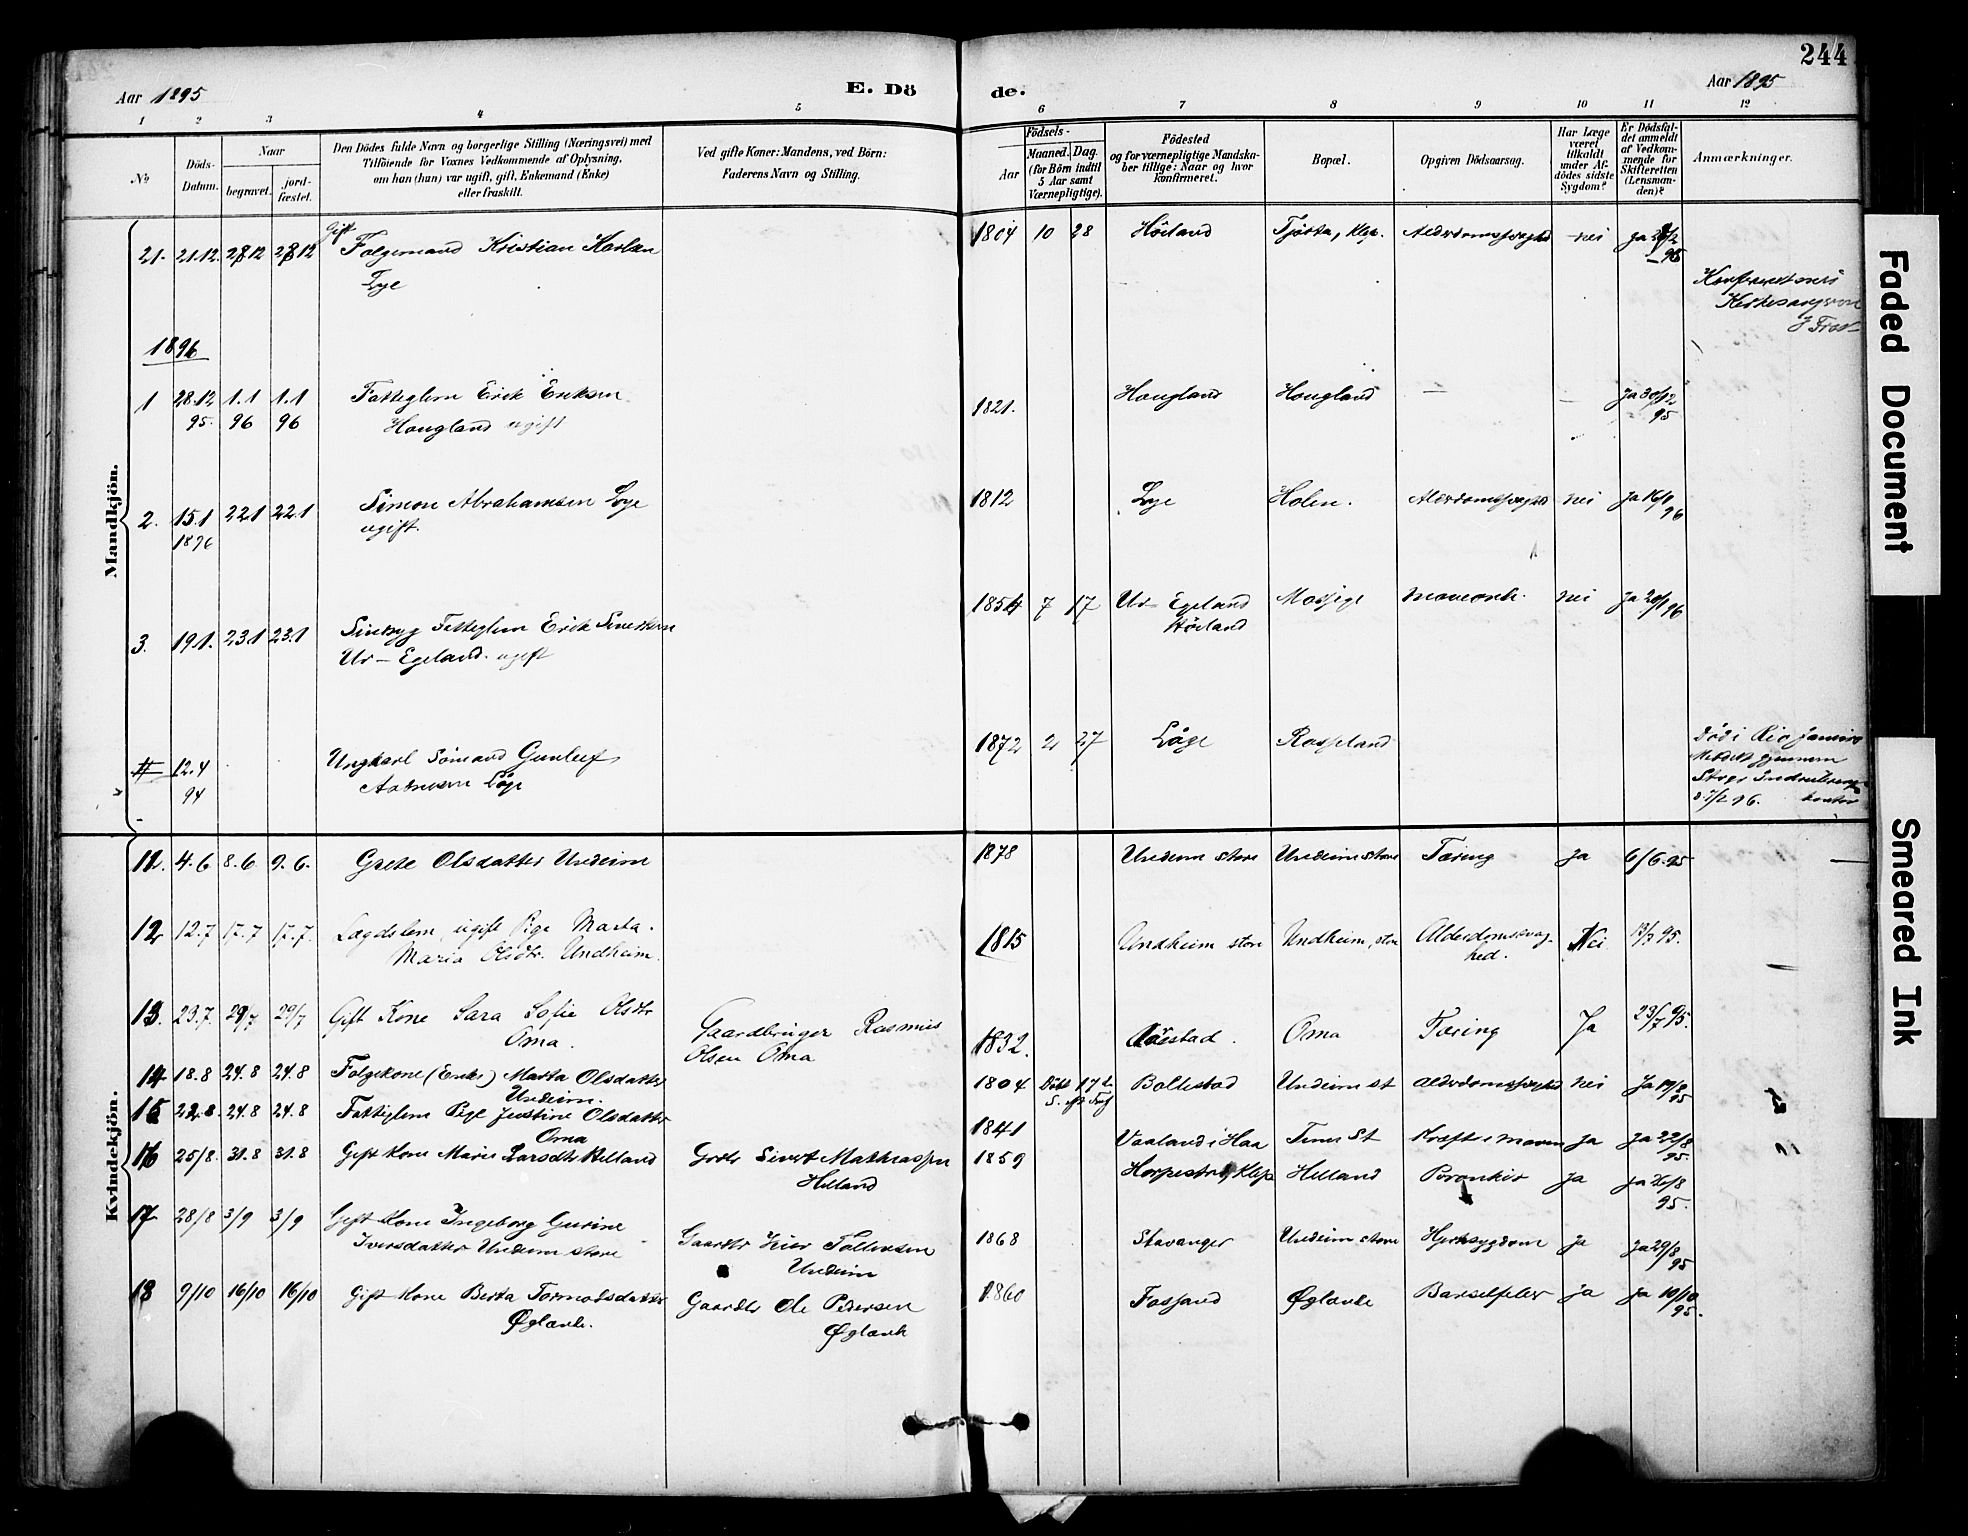 244
Aar 1895
E. Dö
de.
Aar 1895
1 2 3 4 5 6 7 8 9 10 11 12
No
Döds-Datum.
Naar
begravet.
jord-fæstet.
Den Dödes fulde Navn og borgerlige Stilling (Næringsvei) med
Tilföiende for Voxnes Vedkommende af Oplysning,
om han (hun) var ugift, gift, Enkemand (Enke)
eller fraskilt.
Ved gifte Koner: Mandens, ved Börn:
Faderens Navn og Stilling.
Födsels-
Aar
Maaned. Dag.
(for Börn indtil
5 Aar samt
Værnepligtige).
Födested
og for værnepligtige Mandska-
ber tillige: Naar og hvor
konfirmeret.
Bopæl.
Opgiven Dödsaarsag.
Har Læge
været
tilkaldt
under Af-
dödes sidste
Sygdom?
Er Dödsfal-
det anmeldt
af Vedkom-
mende for
Skifteretten
(Lensman-
den)?
Anmærkninger.
Mandkjön.
Gift
21. 21.12. 28 12 28 12 Folgemand Kristian
Lye
1804 10 28 Höiland Tjötta, Klep. Alderdomssvaghed nei ja
1896
1 28.12 95. 1.1 96 1.1 96 Fattiglem Erik Eriksen
Hougland ugift
1821. Hougland Hougland — — Ja 30/12 95
2. 15.1 1896 22.1 22.1 Simon Abrahamsen Lye
ugift.
1812 Lye Holen. Alderdomssvaghed nei ja 16/1 96
3. 19.1. 23.1 23.1 Sindsyg Fattiglem Erik
Ur-Egeland. ugift
1854 7 17 Ur-Egeland
Höiland
nei ja 20/1 96
12.4 94 Ungkarl Sömand Gunleif
Löge
1872 2 27 Löge Rosseland
Död i Rio Janeiro
Meldt gjennem
Kvindekjön.
11. 4.6 8.6 9.6. Grete Olsdatter Undeim
1878 Undeim store Undeim store Tæring ja 6/6.95
12 12.7 17.7 17.7. Lægdslem, ugift Pige Marta
Maria Olsdtr. Undheim.
1815 Undheim store Undheim, store Alderdomssvag-
hed. Nei 13/7 95.
13. 23.7. 29/7 29/7 Gift Kone Sara Sofie Olsdtr
Oma.
Gaardbruger Rasmus
Olsen Oma
1832. Oma Tæring Ja 23/7 95.
14 18.8 24.8 24.8 Folgekone (Enke) Marta Olsdatter
Undeim.
1804 Döbt 17 Bollestad Undeim st Alderdomssvaghed nei Ja 19/8 95
15 22.8. 24.8 24.8 Fattiglem Pige Justine Olsdatter
Oma
1841 Vaaland i Haa Time St Kræft i maven ja ja 22/8 95.
16 25/8. 31.8 31.8 Gift Kone Marie Larsdtr Helland
Grdbr Sivert Mathiassen
Helland
1859 Horpestad, Klep Helland Bronkit ja ja 26/8 95.
17 28/8 3/9 3/9 Gift Kone Ingeborg Gurine
Iversdatter Undeim store
Gaardbr Tollevsen
Undeim
1868 Stavanger Undeim store Hjertesygdom ja ja 29/8 95
18 9/10 16/10 16/10 Gift Kone Berta Tormodsdatter
Øglænd.
Gaardbr Ole Pedersen
Øglænd
1860 Fossand Øglænd Barselfeber ja ja 10/10 95.
Faded Document
Smeared Ink